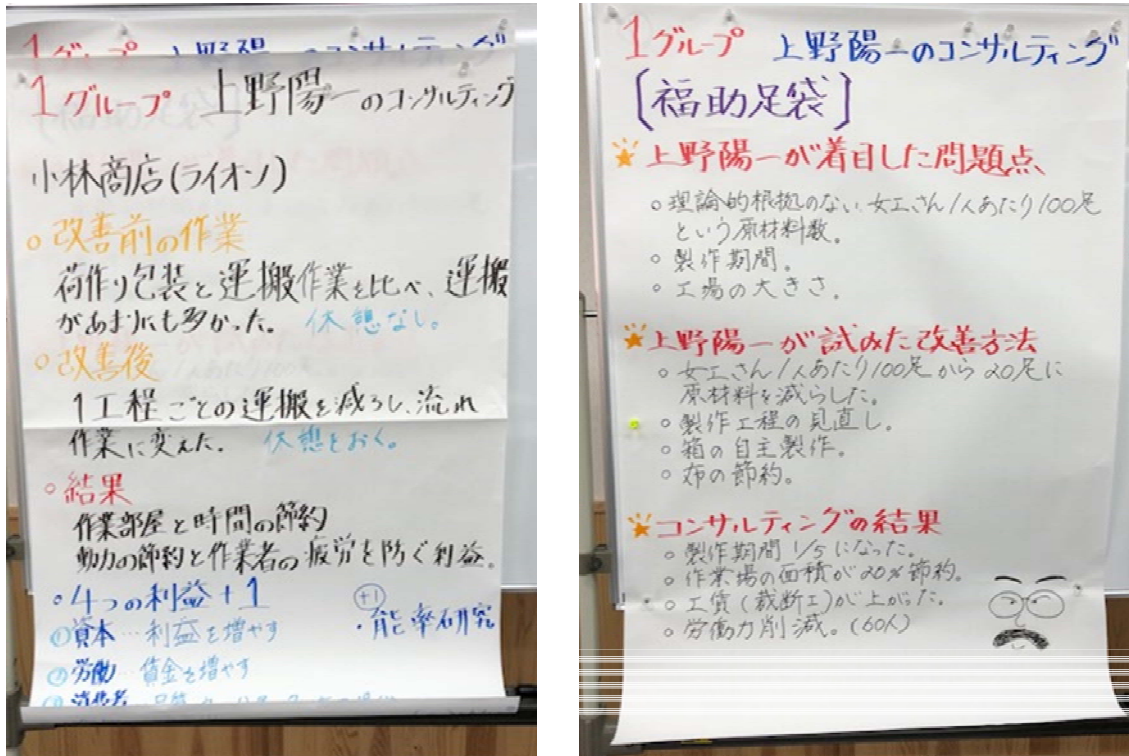 1グループ 上野陽一のコンサルティング
1グループ 上野陽一のコンサルティング
小林商店(ライオン)
○改善前の作業
荷作り包装と運搬作業を比べ、運搬
があまりにも多かった。 休憩なし。
○改善後
1工程ごとの運搬を減らし、流れ
作業に変えた。 休憩をおく。
○結果
作業部屋と時間の節約
動力の節約と作業者の疲労を防ぐ利益。
・4つの利益+1
①資本…利益を増やす
②労働…賃金を増やす
③消費者…
(+1)
・能率研究
1グループ 上野陽一のコンサルティング
[福助足袋]
★上野陽一が着目した問題点
○理論的根拠のない女工さん1人あたり100足
という原材料数。
○製作期間。
○工場の大きさ。
★上野陽一が試みた改善方法
○女工さん1人あたり100足から20足に
原材料を減らした。
○製作工程の見直し。
○箱の自主製作。
○布の節約。
★コンサルティングの結果
○製作期間1/5になった。
○作業場の面積が20%節約。
○工賃(裁断工)が上がった。
○労働力削減。(60人)